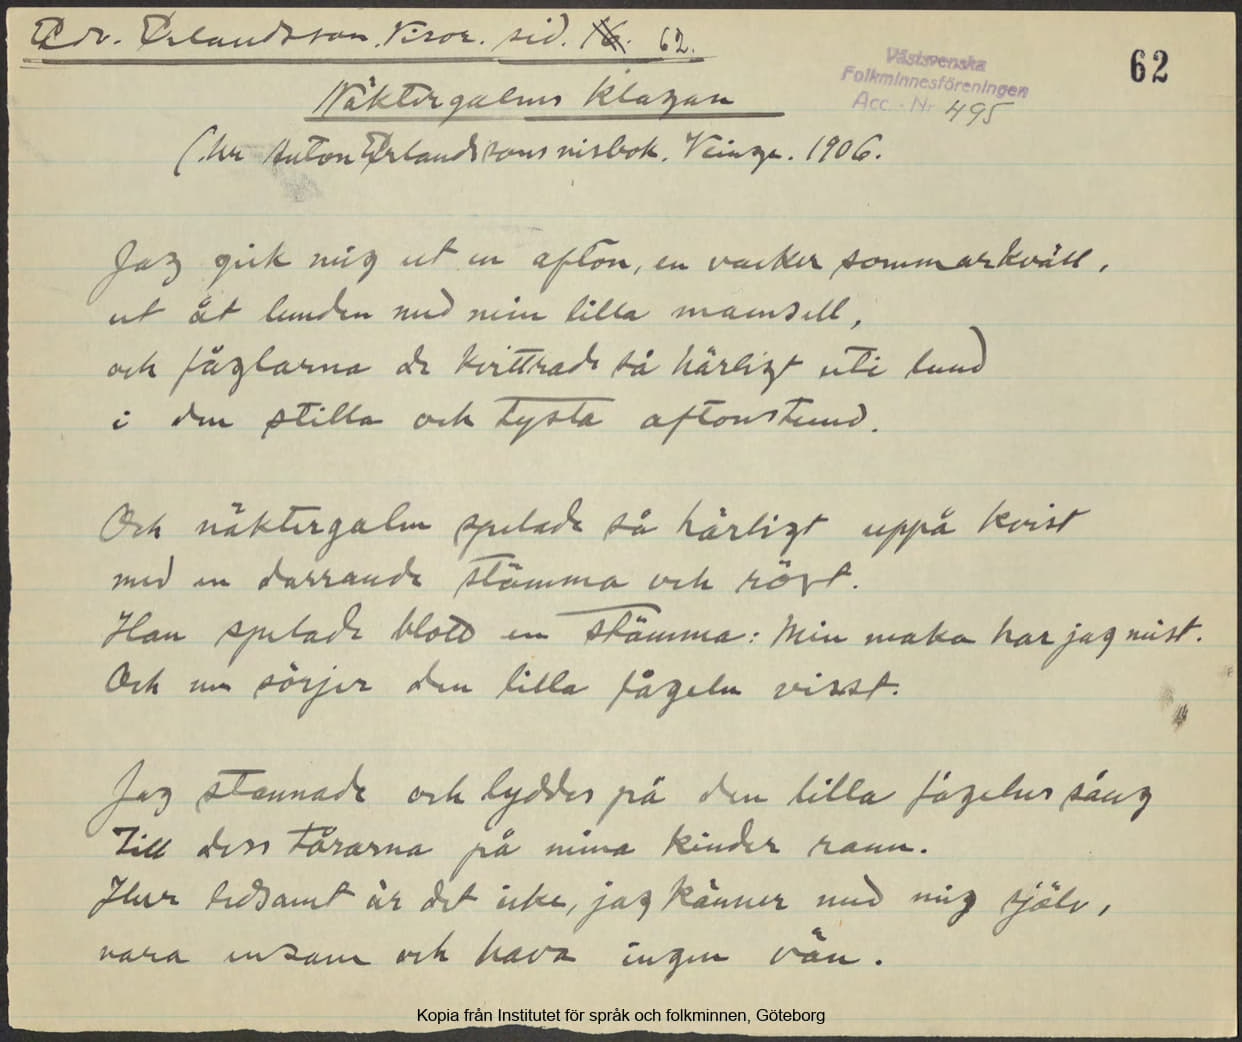 Edv. Erlandsson. Visor. sid. 16. 62.
62
Västsvenska
Folkminnesföreningen
Acc. - Nr 495
Näktergalens klagan
(Ur Anton Erlandssons visbok. Veinge. 1906.
Jag gick mig ut en afton, en vacker sommarkväll,
ut åt lunden med min lilla mamsell,
och fåglarna de kvittrade så härligt uti lund
i den stilla och tysta aftonstund.
Och näktergalen spelade så härligt uppå kvist
med en darrande stämma och röst.
Han spelade blott en stämma: Min maka har jag mist.
Och nu sörjer den lilla fågeln visst.
Jag stannade och lyddes på den lilla fågelns sång
Till dess tårarna på mina kinder rann.
Hur ledsamt är det icke, jag känner med mig själv,
vara ensam och hava ingen vän.
Kopia från Institutet för språk och folkminnen, Göteborg